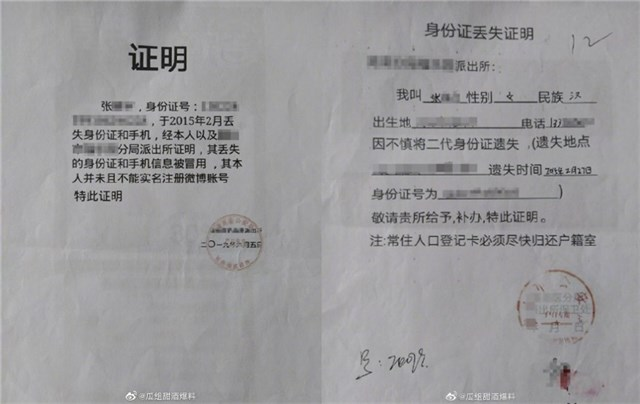 证明
张
,身份证号:
,于2015年2月丢
失身份证和手机,经本人以及
分局派出所证明,其丢失
的身份证和手机信息被冒用,其本
人并未且不能实名注册微博账号
特此证明
二〇一九年 月五日
@瓜组甜酒爆料
身份证丢失证明
12
派出所:
我叫 张 性别 女 民族 汉
出生地 电话
因不慎将二代身份证遗失,(遗失地点
遗失时间 2015年2月27日
身份证号为 )
敬请贵所给予,补办,特此证明。
注:常住人口登记卡必须尽快归还户籍室
月
@瓜组甜酒爆料